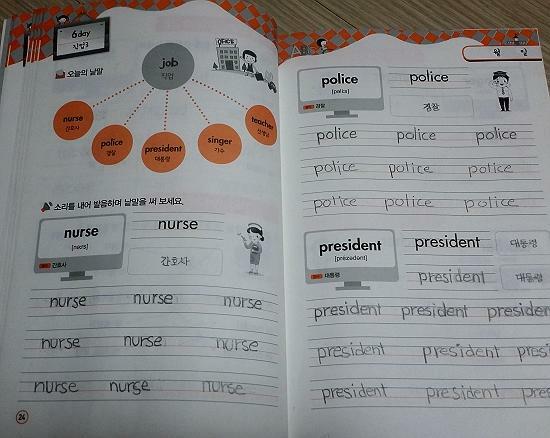 6day
직업3
오늘의 낱말
job
직업
nurse
간호사
police
경찰
president
대통령
singer
가수
teacher
선생님
소리를 내어 발음하며 낱말을 써 보세요.
nurse
[nəːrs]
간호사
nurse
간호사
nurse nurse nurse
nurse nurse nurse
nurse nurse nurse
24
월 일
police
[pəlíːs]
경찰
police
경찰
police police police
police police police
police police police
president
[prézədənt]
대통령
president 대통령
president 대통령
president president presiden
president president presi
president president presi